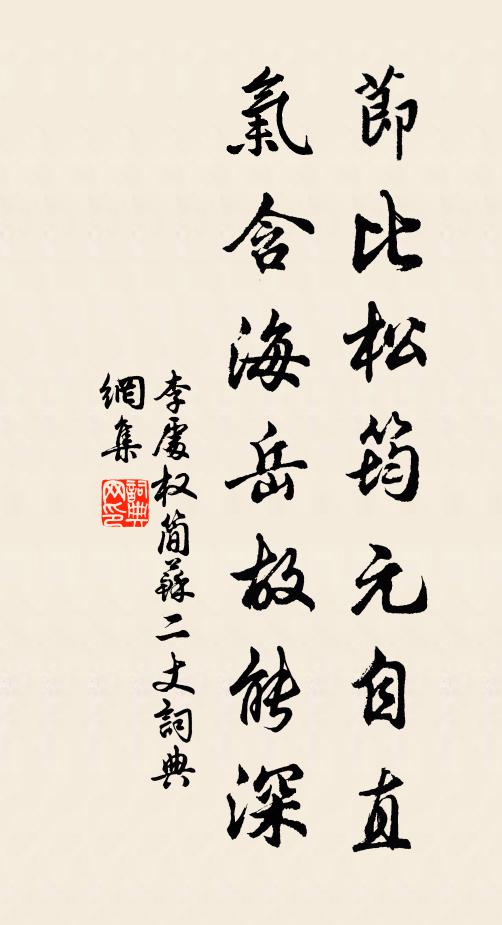 節比松筠元自直
氣含海岳故能深
李處权簡蘇二丈詞典
網集
詞典網印